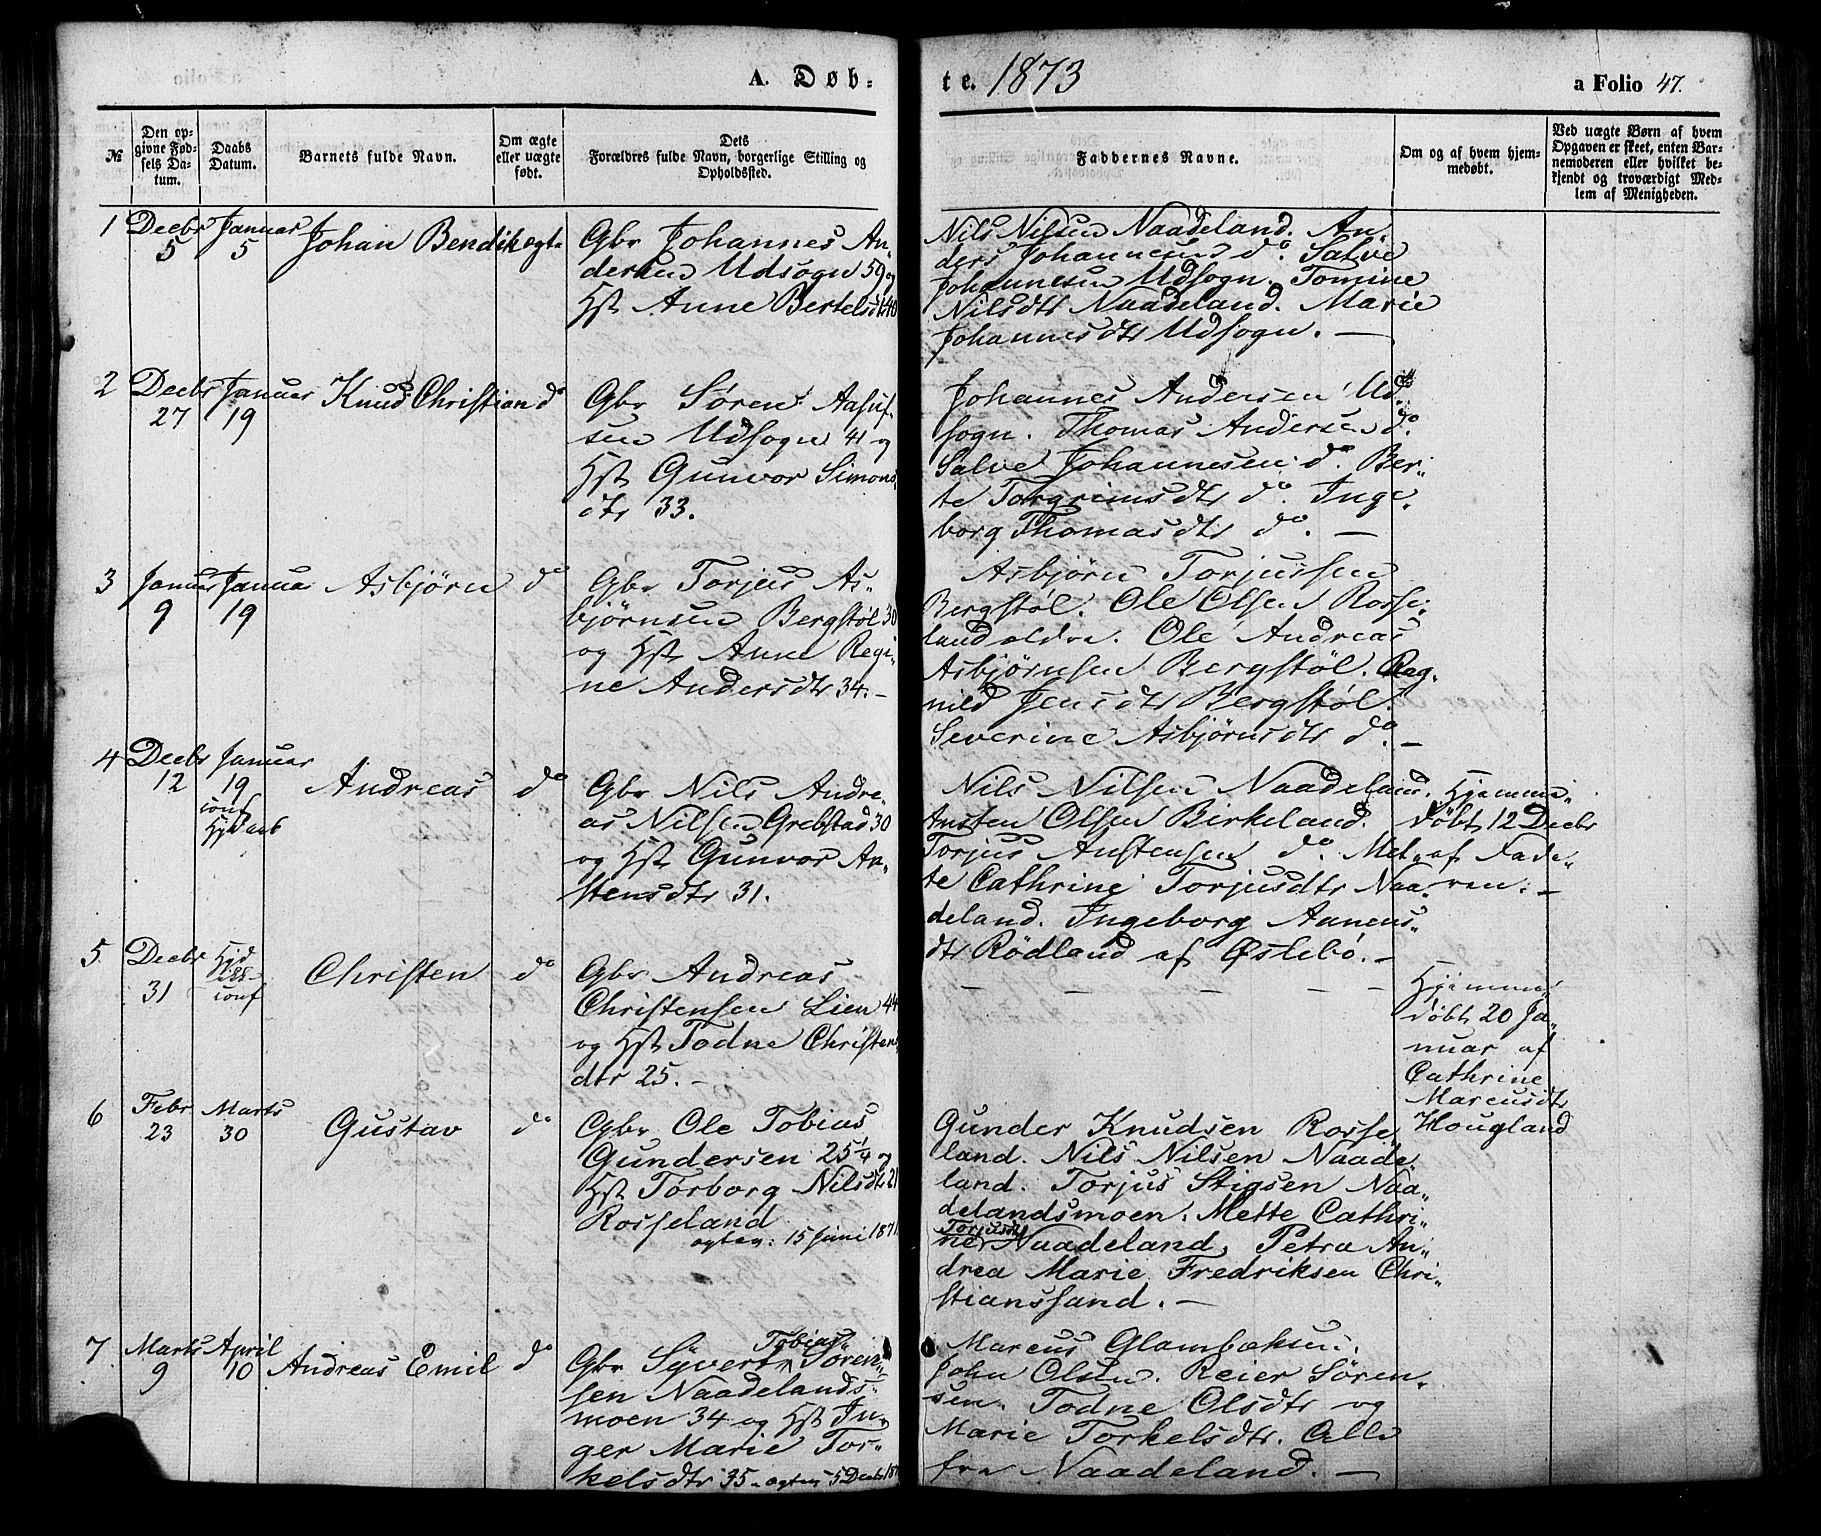 A. Døb-
te. 1873
a Folio 47.
№
Den op-
givne Fød-
sels Da-
tum.
Daabs
Datum.
Barnets fulde Navn.
Om ægte
eller uægte
født.
Dets
Forældres fulde Navn, borgerlige Stilling og
Opholdssted.
Faddernes Navne.
Om og af hvem hjem-
medøbt.
Ved uægte Børn af hvem
Opgaven er skeet, enten Bar-
nemoderen eller hvilket be-
kjendt og troværdigt Med-
lem af Menigheden.
1
Decbr
5
Januar
5
Johan Bendik
ægte
Gbr Johannes An-
dersen Udsogn 59 og
Hst Anne Bertelsdtr 40
Nils Nilsen Naadeland. An-
ders Johannesen do. Salve
Johannesen Udsogn. Tomine
Nilsdtr Naadeland. Marie
Johannesdtr Udsogn. —
2
Decbr
27
Januar
19
Knud Christian
do
Gbr Søren Aasuf-
sen Udsogn 41 og
Hst Gunvor Simons
dtr 33.
Johannes Andersen Ud-
sogn. Thomas Andersen do.
Salve Johannesen do. Ber-
te Torgrimsdtr do. Inge-
borg Thomasdtr do. —
3
Januar
9
Januar
19
Asbjørn
do
Gbr Torjus As-
bjørnsen Bergstøl 30
og Hst Anne Regi-
ne Andersdtr 34. —
Asbjørn Torjussen
Bergstøl. Ole Olsen Rosse-
land ældre. Ole Andreas
Asbjørnsen Bergstøl. Rag-
nild Jensdtr Bergstøl.
Severine Asbjørnsdtr do. —
4
Decbr
12
Januar
19
conf
Hjd
Andreas
do
Gbr Nils Andre-
as Nilsen Grebstad 30
og Hst Gunvor An-
stensdtr 31.
Nils Nilsen Naadeland.
Ansten Olsen Birkeland.
Torjus Anstensen do. Met-
te Cathrine Torjusdtr Naa-
deland. Ingeborg Aanens-
dtr Rödland af Øslebø. —
Hjemme-
døbt 12 Decbr
af Fade-
ren. —
5
Decbr
31
Hjd
conf
Christen
do
Gbr Andreas
Christensen Lien 44
og Hst Todne Christens
dtr 25. —
— — — — —
Hjemme-
døbt 20 Ja-
nuar af
Cathrine
Marcusdtr
Hougland
6
Febr
23
Marts
30
Gustav
do
Gbr Ole Tobias
Gundersen 25 1/4 og
Hst Torborg Nilsdtr 21
Rosseland
ægtev. 15 Juni 1871
Gunder Knudsen Rosse-
land. Nils Nilsen Naade-
land. Torjus Stigsen Naa-
delandsmoen. Mette Cathri-
ne Torjusdtr Naadeland. Petra An-
drea Marie Fredriksen Chri-
stianssand. —
7
Marts
9
April
10
Andreas Emil
do
Gbr Syvert Tobias Søren-
sen Naadelands-
moen 34 og Hst In-
ger Marie Tor-
kelsdtr 35 — ægtev 5 Decbr
Marcus Glambæksen.
John Olsen. Reier Søren-
sen. Todne Olsdtr og
Marie Torkelsdtr. Alle
fra Naadeland. —